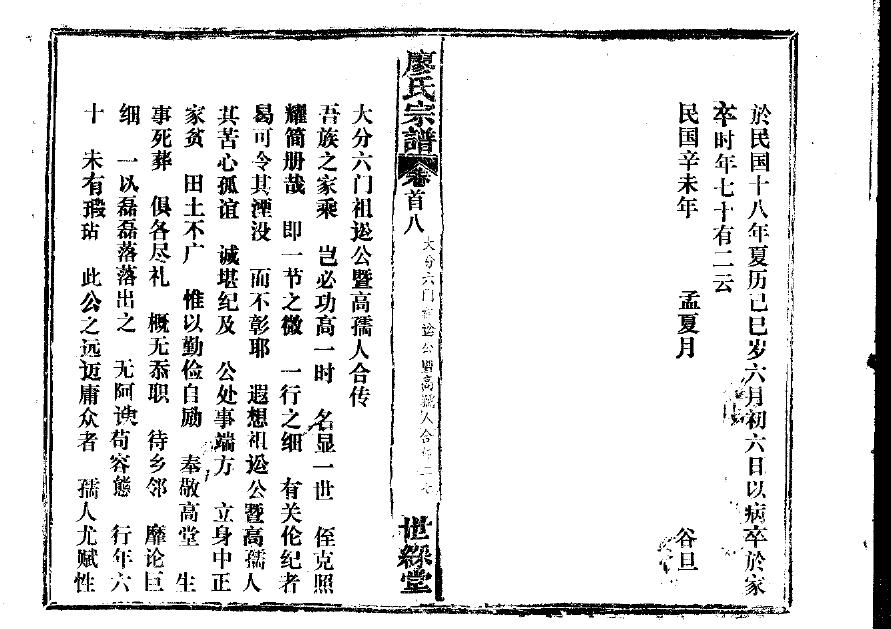 於民国十八年夏历己巳岁六月初六日以病卒於家
卒时年七十有二云
民国辛未年 孟夏月 谷旦
廖氏宗譜 卷首八 大分六门祖讼公暨高孺人合传二 世綵堂
大分六门祖讼公暨高孺人合传
吾族之家乘 岂必功高一时 名显一世 侄克照
耀简册哉 即一节之微 一行之细 有关伦纪者
曷可令其湮没 而不彰耶 遐想祖讼公暨高孺人
其苦心孤谊 诚堪纪及 公处事端方 立身中正
家贫 田土不广 惟以勤俭自励 奉敬高堂 生
事死葬 俱各尽礼 概无忝职 待乡邻 靡论巨
细 一以磊磊落落出之 无阿谀苟容態 行年六
十 未有瑕玷 此公之远迈庸众者 孺人尤赋性